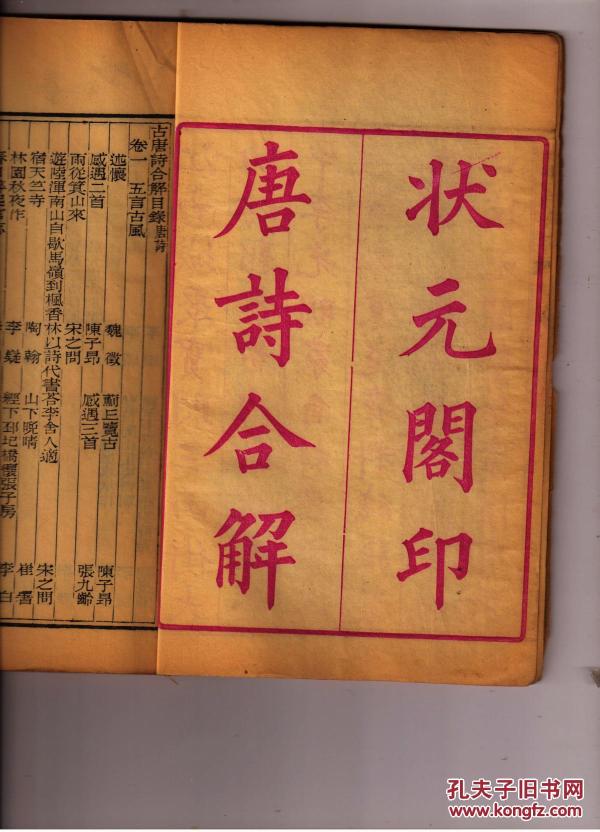 状元閣印
唐詩合解
古唐詩合解目錄 唐詩
卷一 五言古風
述懷 魏徵 薊丘覽古 陳子昂
感遇二首 陳子昂 感遇三首 張九齡
雨從箕山來 宋之問
遊陸渾南山自歇馬嶺到楓香林以詩代書荅李舍人適 宋之問
宿天竺寺 陶翰 山下晚晴 崔署
林園秋夜作 李嶷 經下邳圯橋懷張子房 李白
孔夫子旧书网
www.kongfz.com